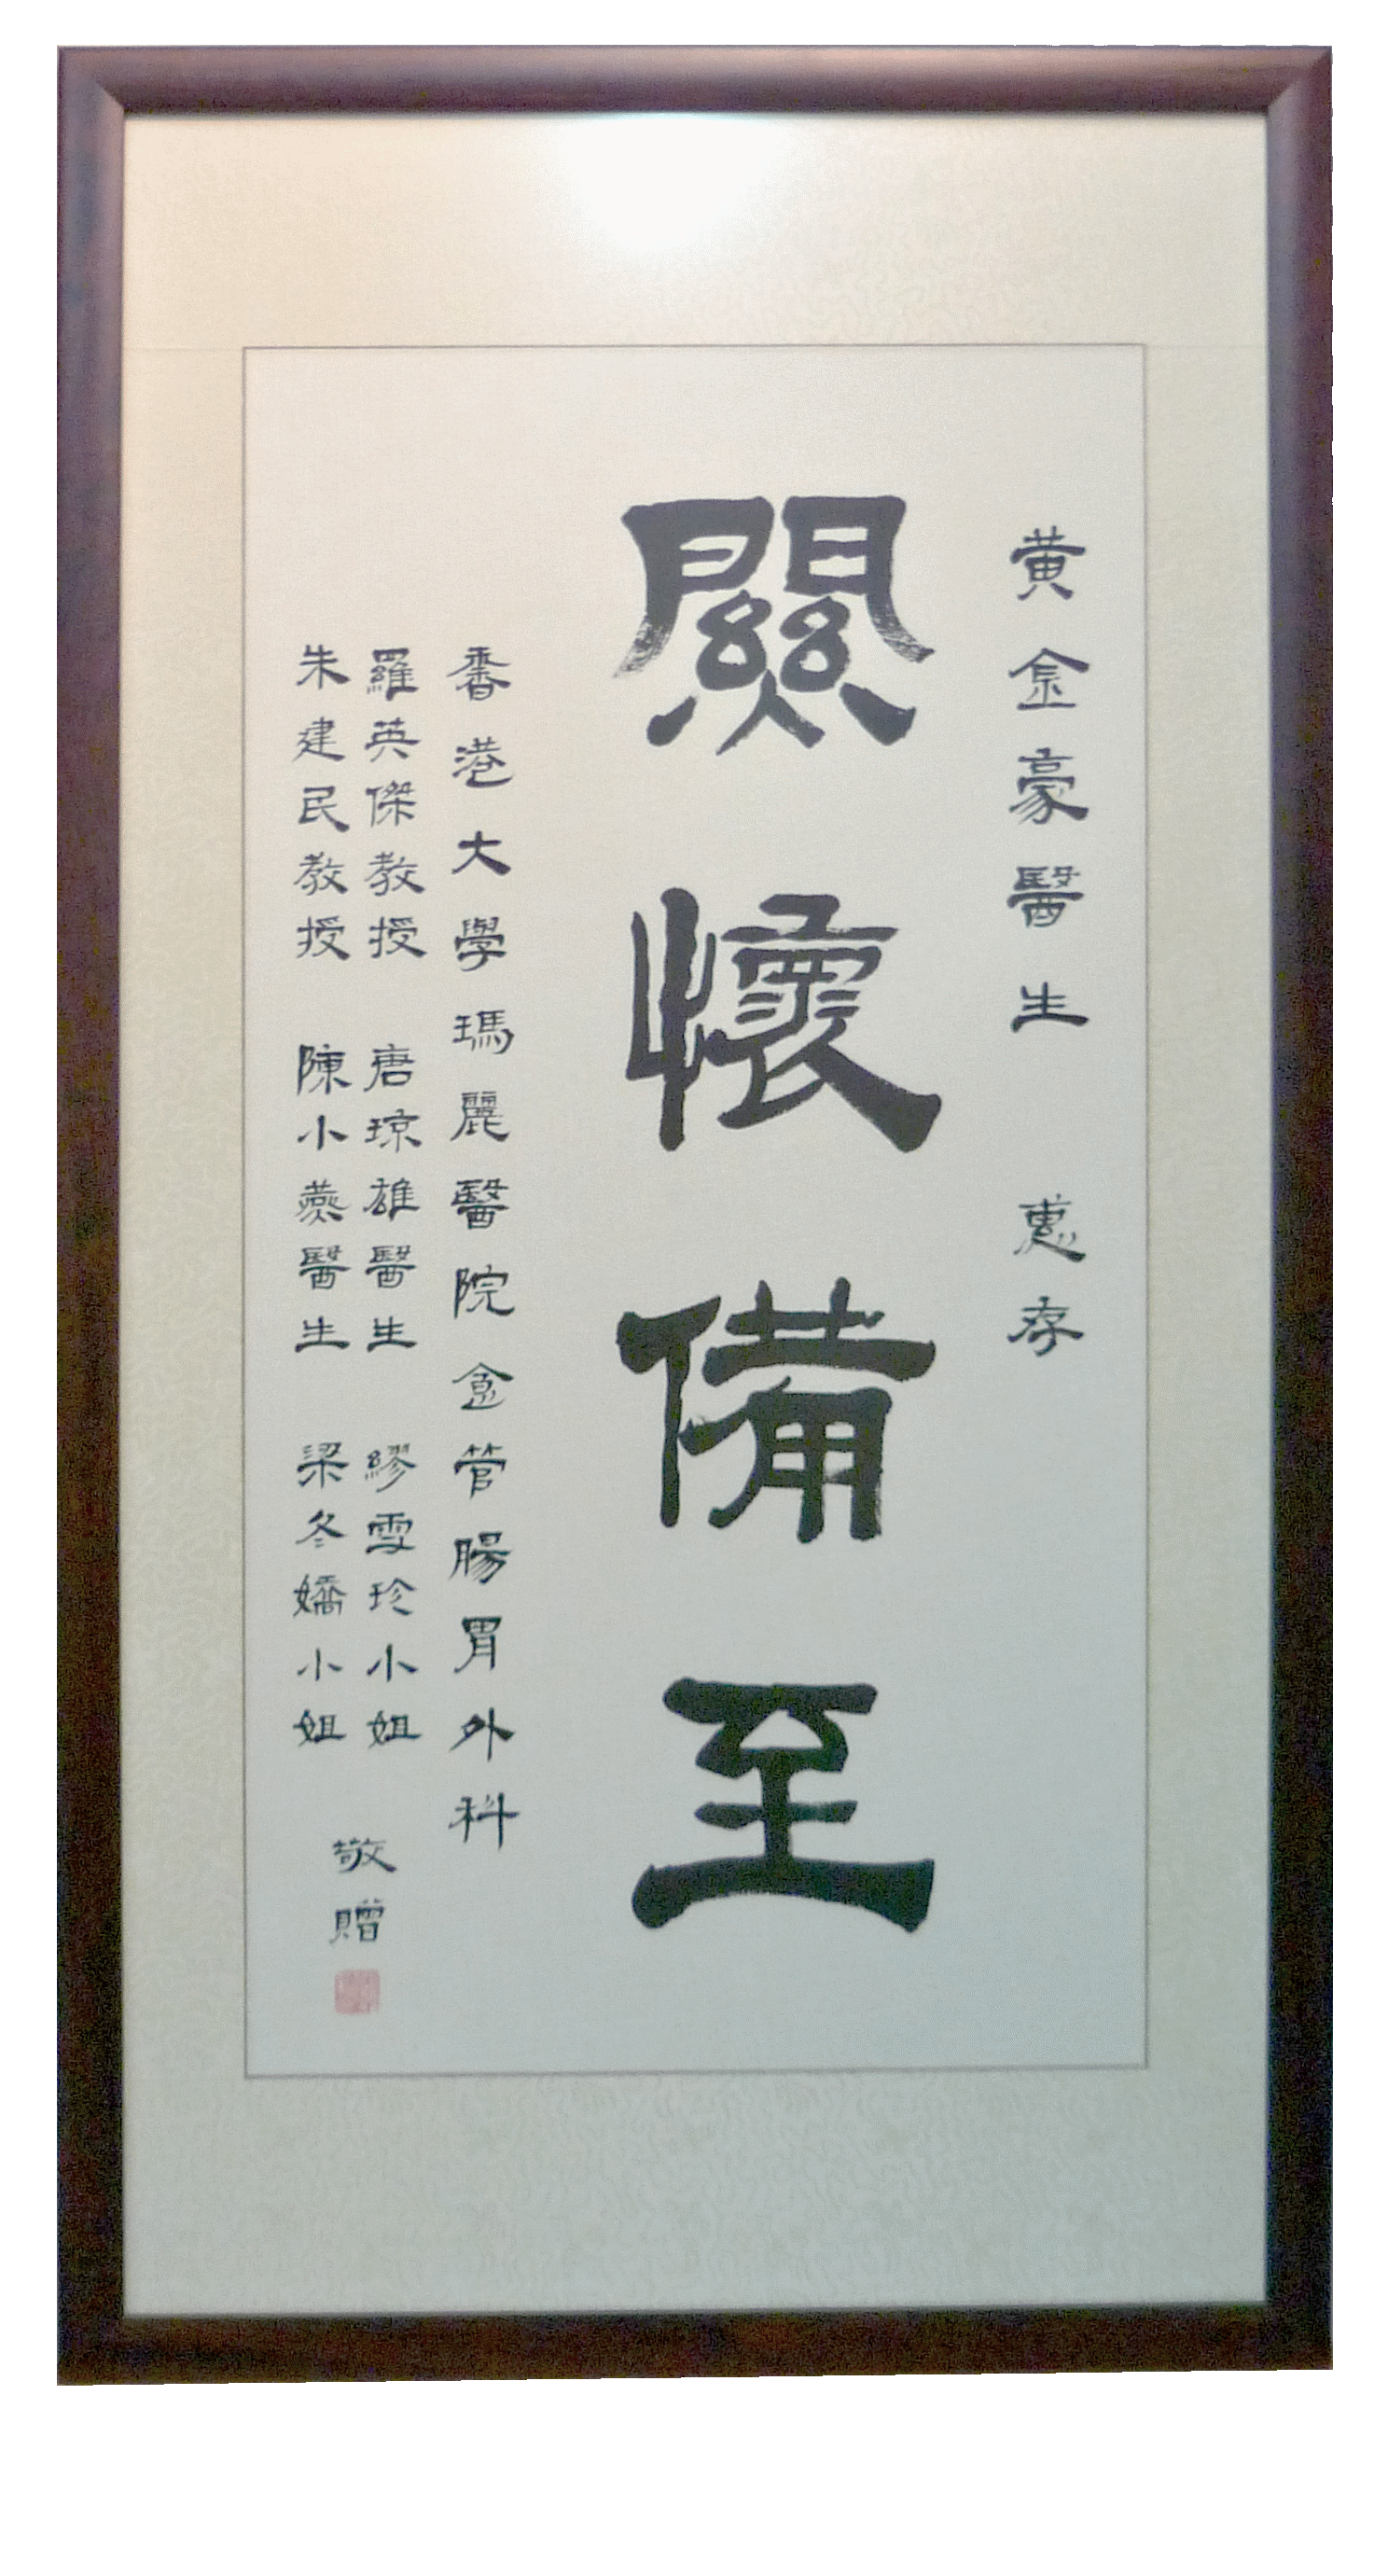 黃金豪醫生 惠存
關懷備至
香港大學瑪麗醫院食管腸胃外科
羅英傑教授 唐琼雄醫生 繆雪珍小姐
朱建民教授 陳小燕醫生 梁冬嬌小姐
敬贈